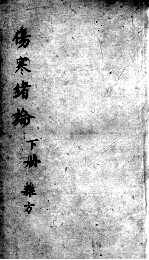 傷寒緒論 下冊 雜方